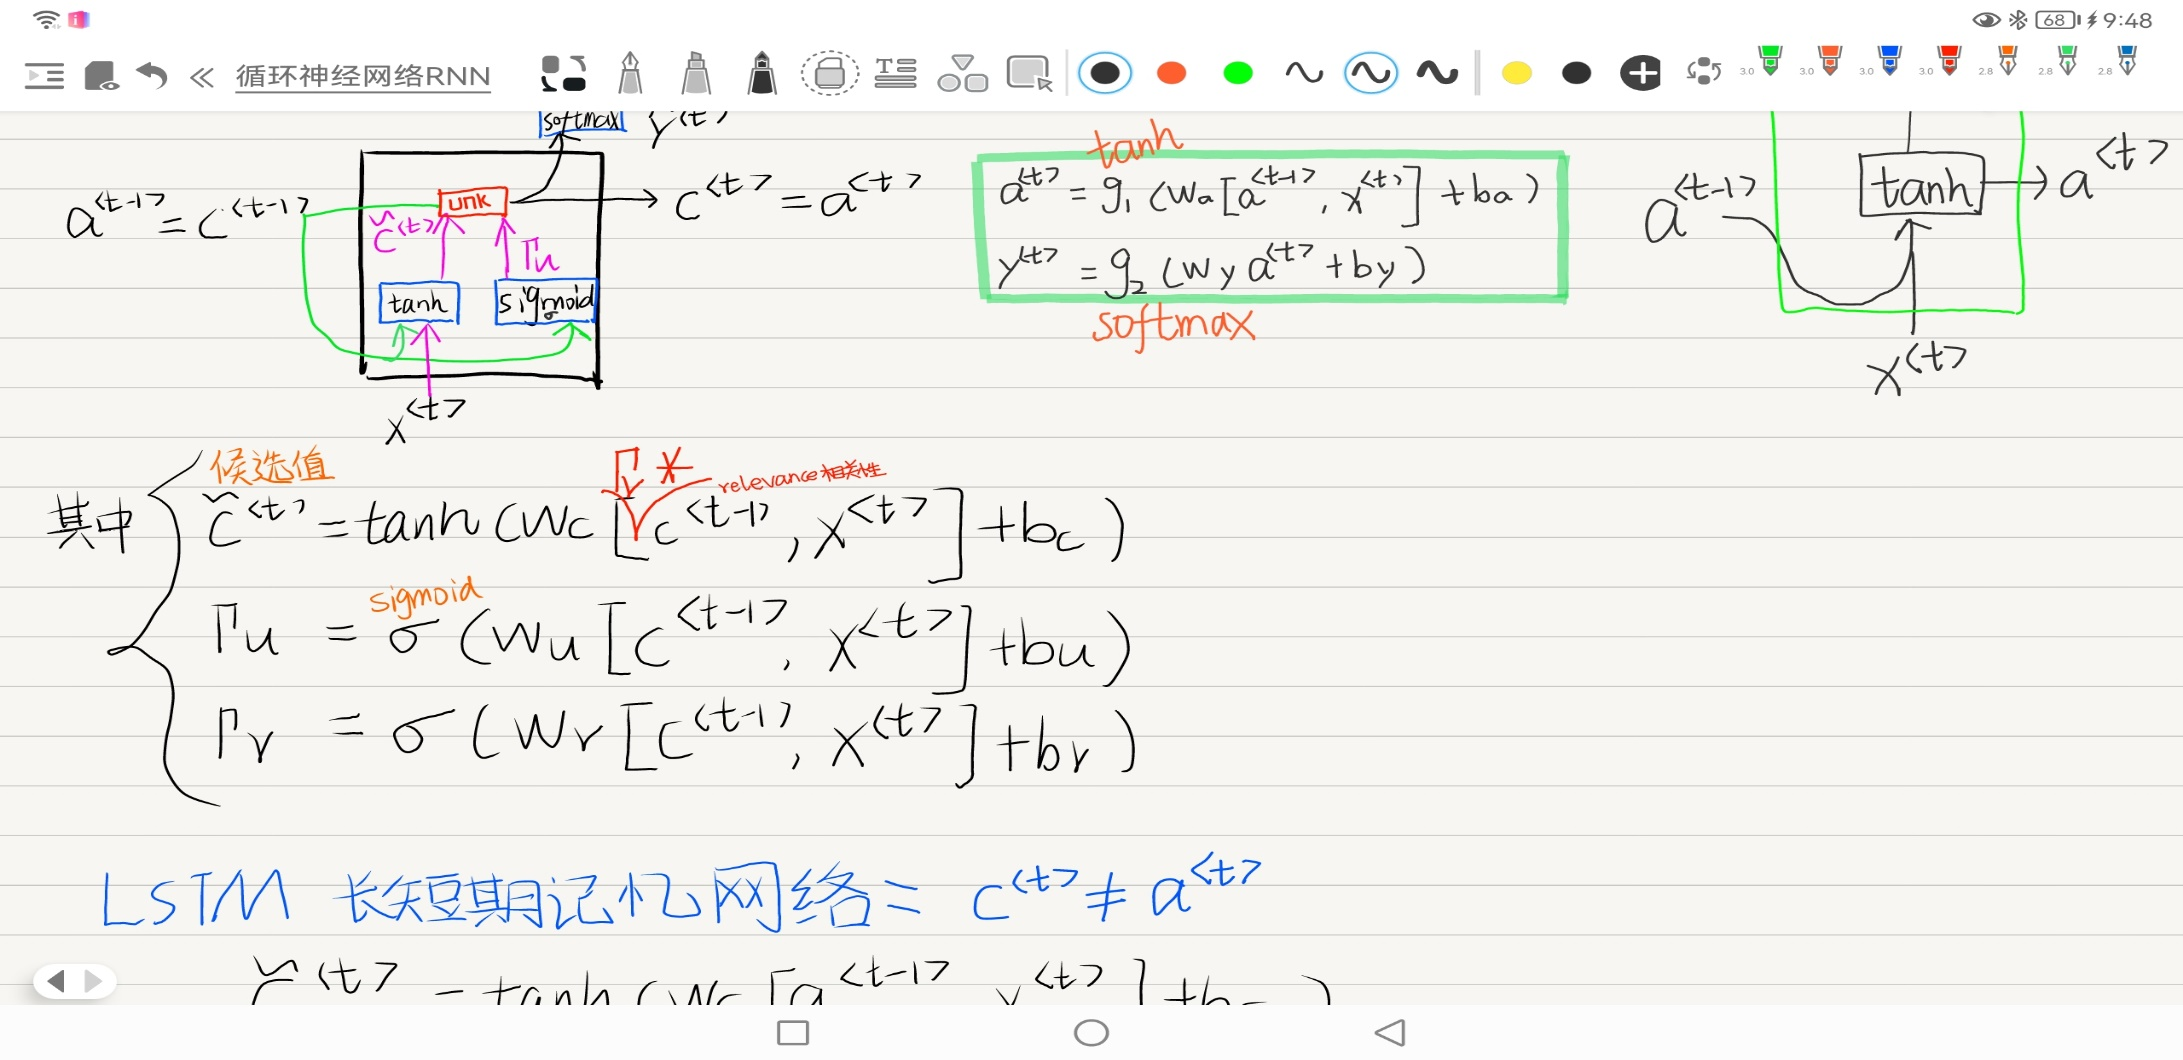 68 9:48
循环神经网络RNN
3.0 3.0 3.0 3.0 2.8 2.8 2.8
softmax y<t>
a<t-1> = c<t-1>
unk
c<t> = a<t>
c̃<t>
Γu
tanh
sigmoid
σ
x<t>
tanh
a<t> = g₁(Wa[a<t-1>, x<t>] + ba)
y<t> = g₂(Wy a<t> + by)
softmax
a<t-1>
tanh
a<t>
x<t>
候选值
Γr *
relevance相关性
其中
c̃<t> = tanh(Wc[c<t-1>, x<t>] + bc)
sigmoid
Γu = σ(Wu[c<t-1>, x<t>] + bu)
Γr = σ(Wr[c<t-1>, x<t>] + br)
LSTM 长短期记忆网络: c<t> ≠ a<t>
c̃<t> = tanh(Wc[a<t-1>, x<t>] + bc)